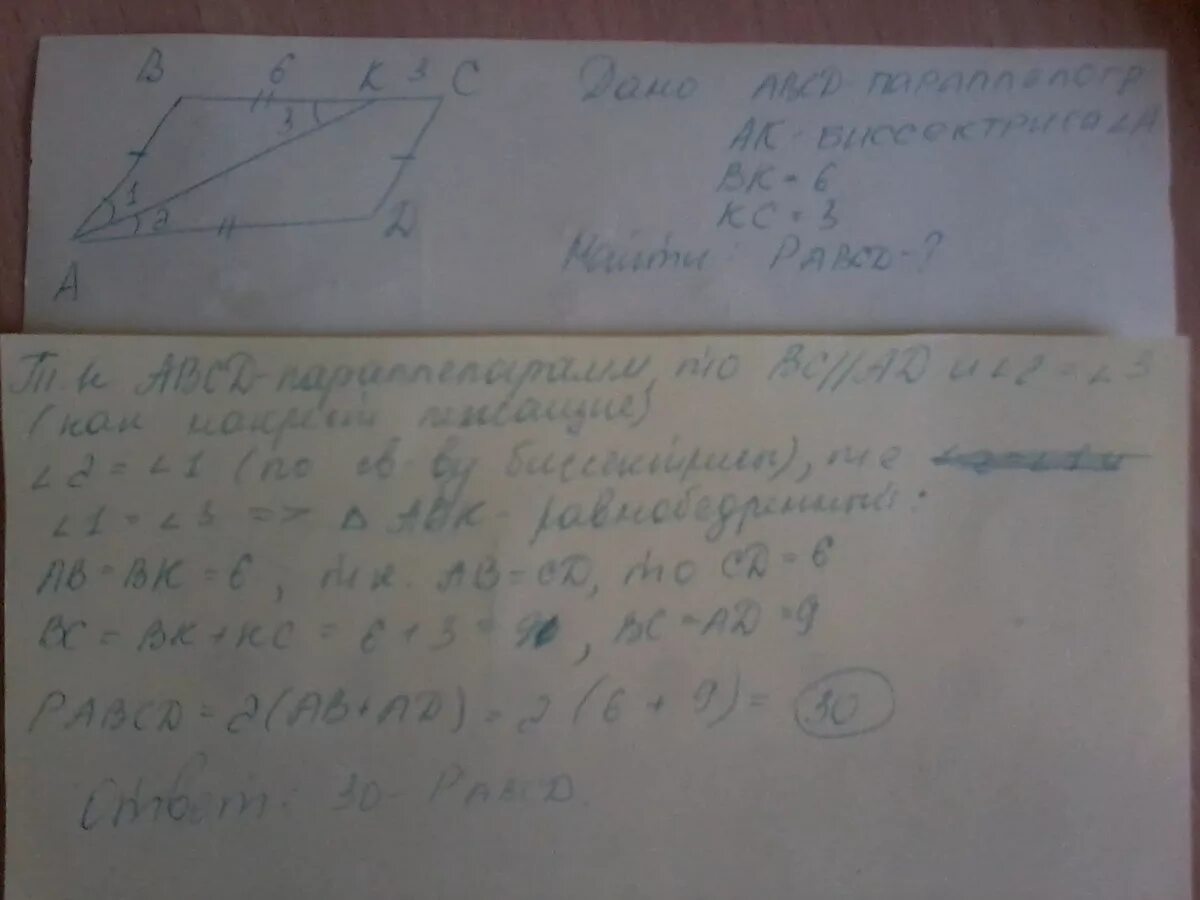 B 6 K 3 C
3
1
2
D
A
Дано ABCD-параллелогр
AK-биссектриса ∠A
BK = 6
KC = 3
Найти: PABCD-?
Т.к ABCD-параллепарамм, то BC//AD и ∠2 = ∠3
(как накрест лежащие)
∠2 = ∠1 (по св-ву биссектрисы), т.е
∠1 = ∠3 => △ ABK - равнобедренный:
AB = BK = 6, т.к. AB = CD, то CD = 6
BC = BK + KC = 6 + 3 = 9, BC = AD = 9
PABCD = 2(AB+AD) = 2 (6 + 9) = 30
Ответ: 30- PABCD.